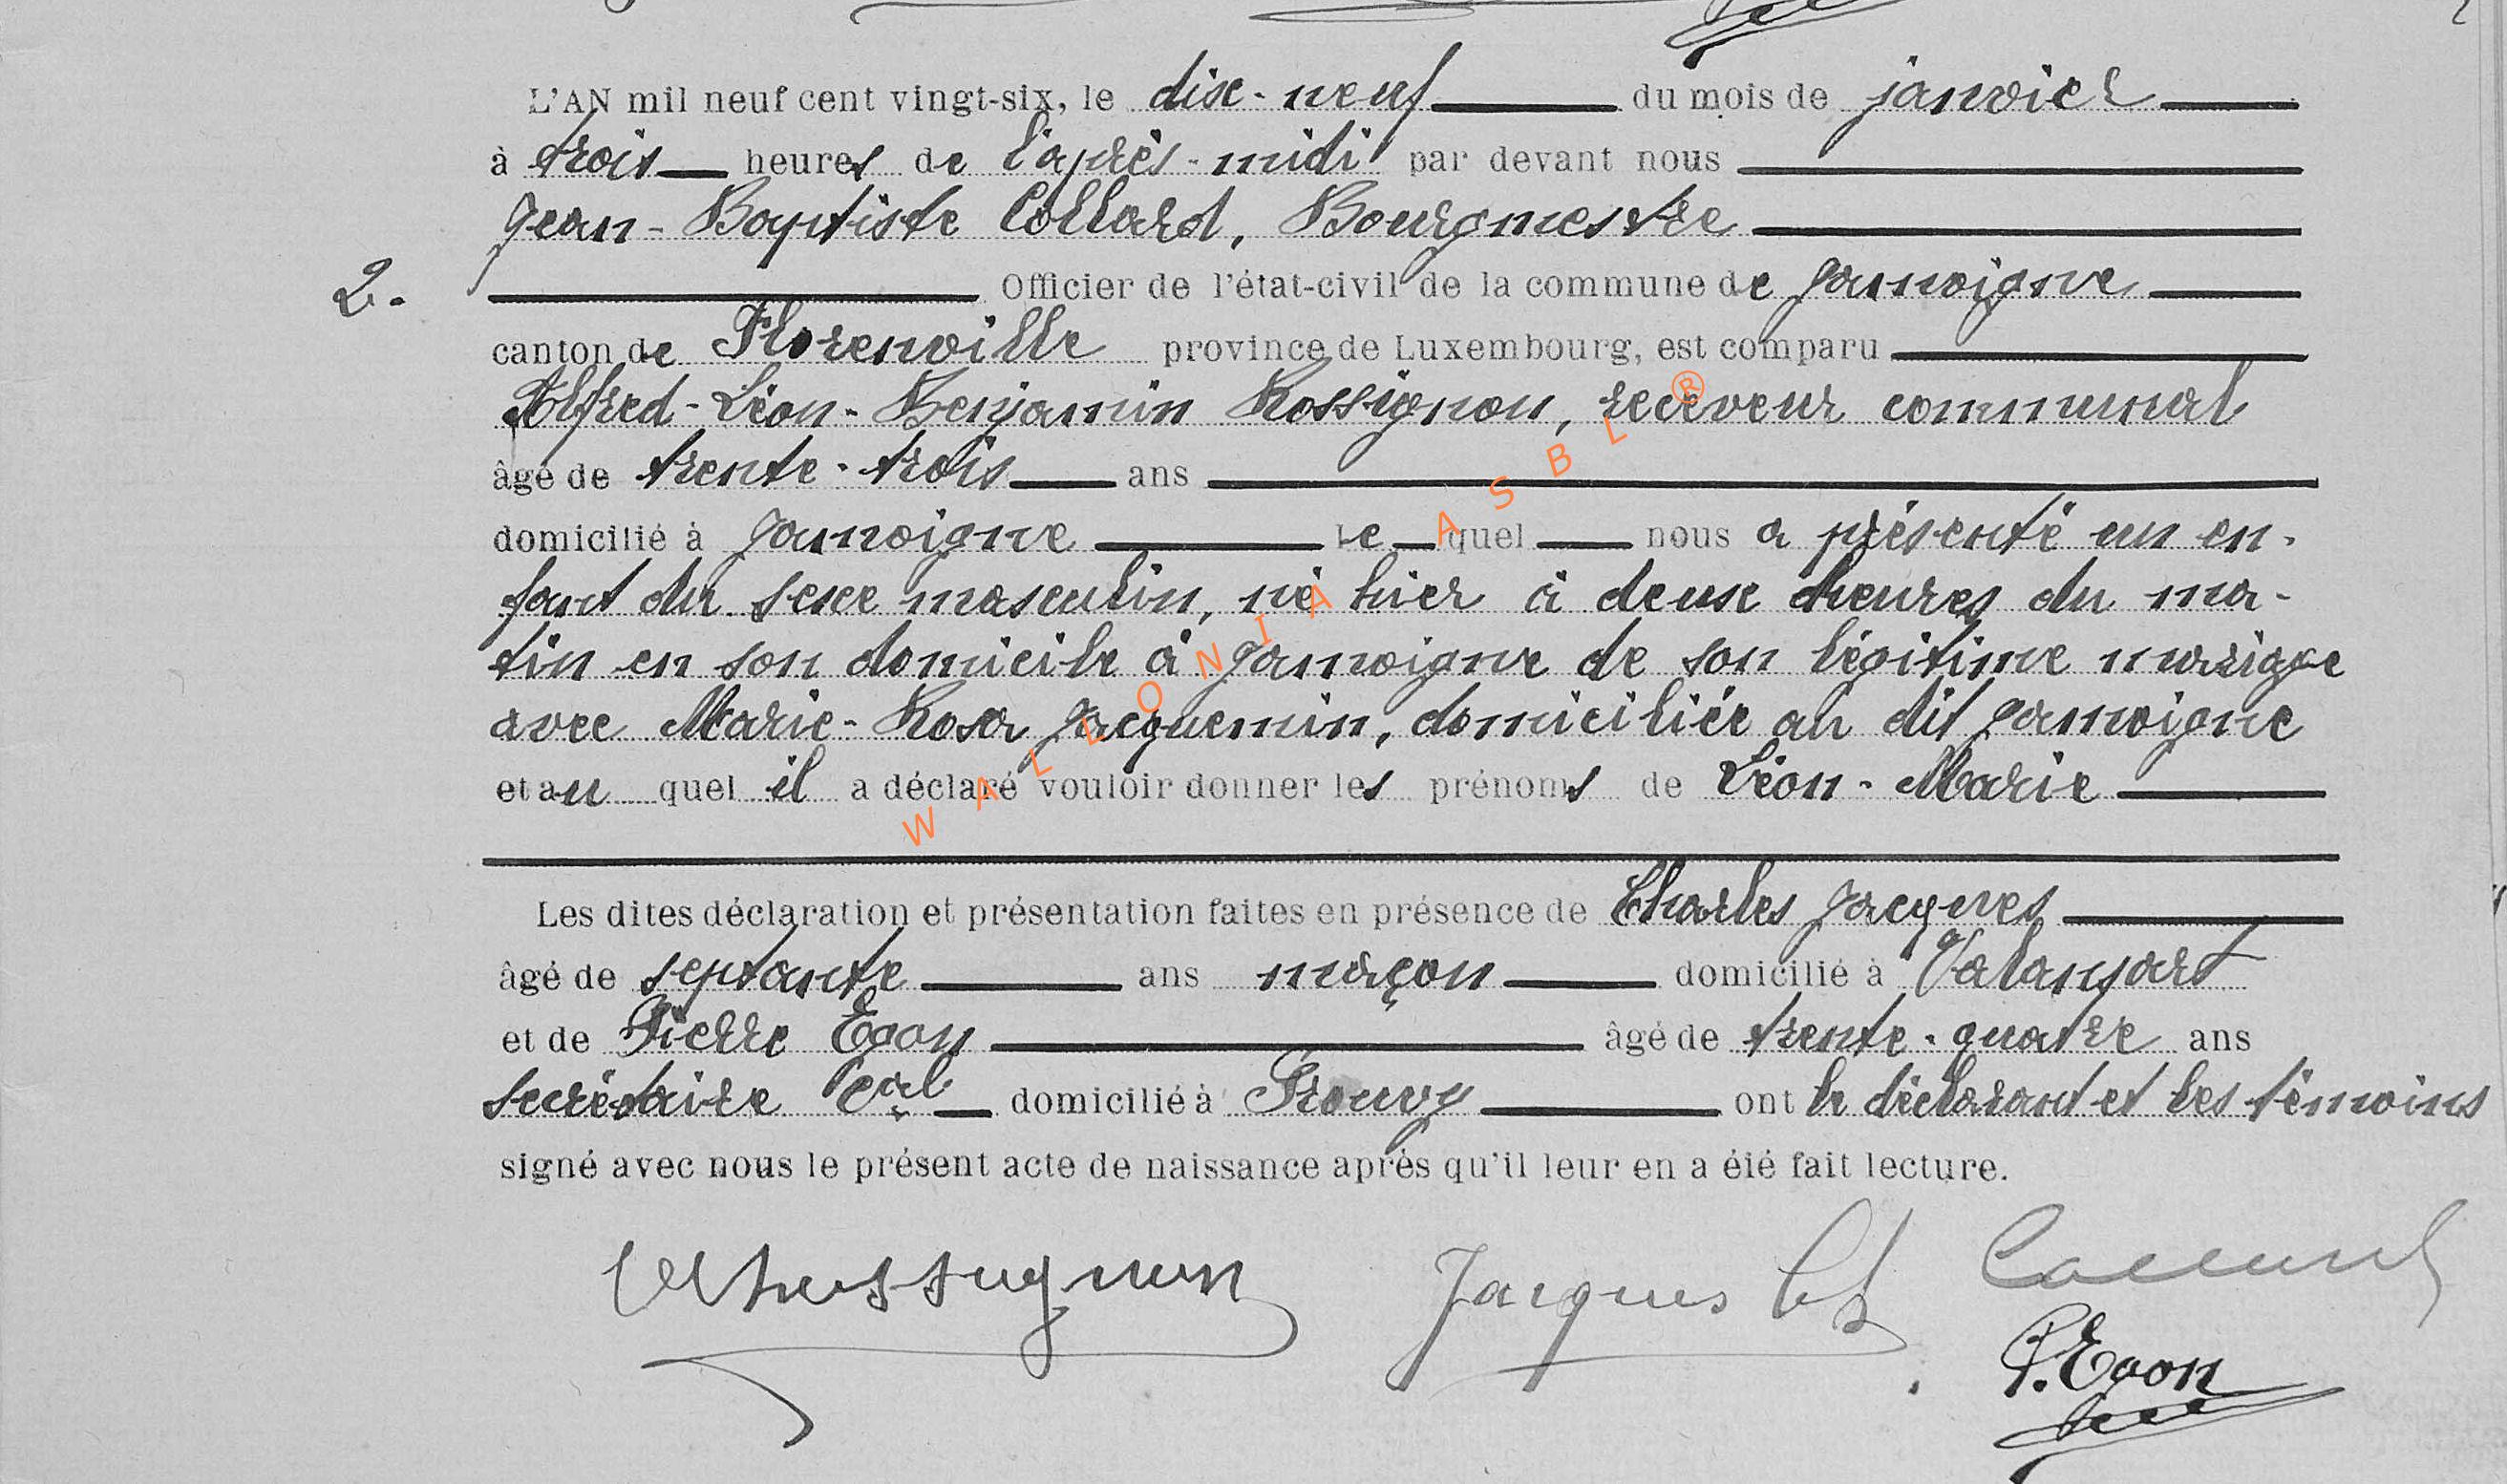 L'AN mil neuf cent vingt-six, le dix-neuf du mois de janvier
à trois heures de l'après-midi par devant nous
Jean-Baptiste Collard, Bourgmestre
2.
Officier de l'état-civil de la commune de Jamoigne
canton de Florenville province de Luxembourg, est comparu
Alfred-Léon-Benjamin Rossignon, receveur communal
âgé de trente-trois ans
domicilié à Jamoigne le quel nous a présenté un en-
fant du sexe masculin, né hier à deux heures du ma-
tin en son domicile à Jamoigne de son légitime mariage
avec Marie-Rosa Jacquemin, domiciliée au dit Jamoigne
et au quel il a déclaré vouloir donner les prénoms de Léon-Marie
Les dites déclaration et présentation faites en présence de Charles Jacques
âgé de septante ans maçon domicilié à Valansart
et de Pierre âgé de trente-quatre ans
secrétaire Cal domicilié à Prouvy ont le déclarant et les témoins
signé avec nous le présent acte de naissance après qu'il leur en a éié fait lecture.
Rossignon Jacques Ch Collard
P.
WALLONIA ASBL ®